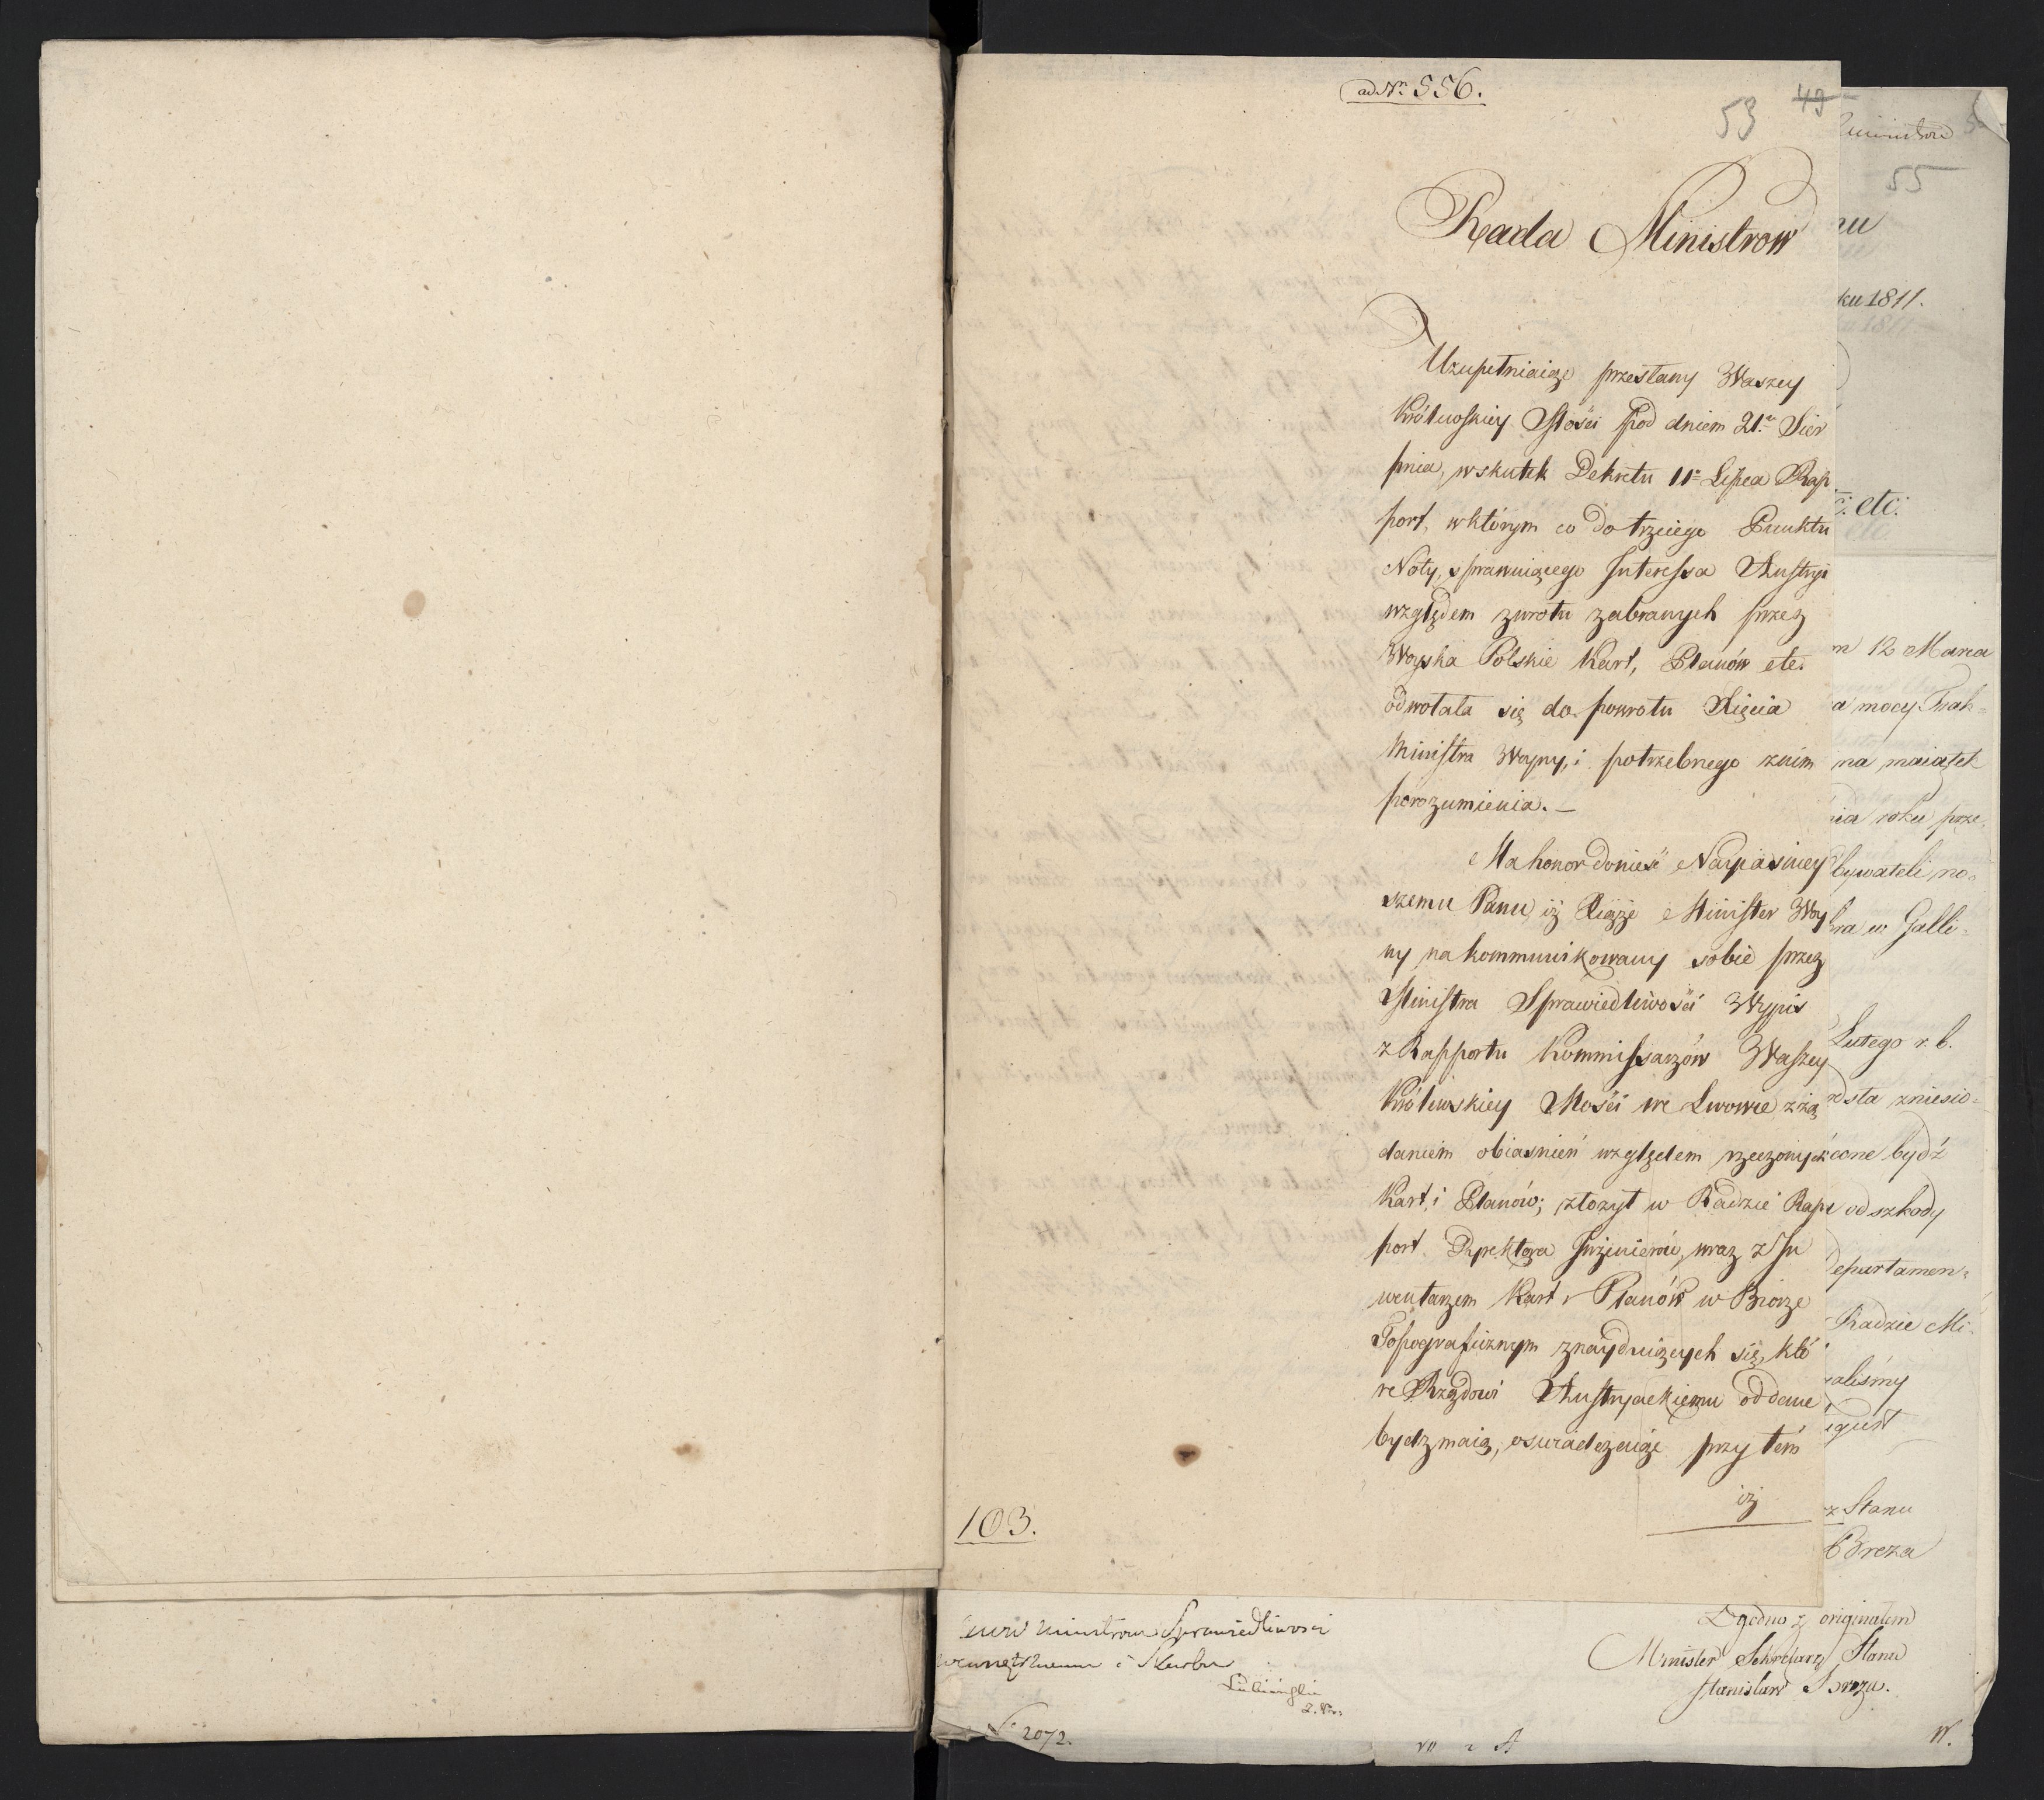 ad Nr. 556.
53 49
Rada Ministrow
Uzupełniaiąc przesłany Waszey
Królewskiey Mości pod dniem 21. Sier
pnia, w skutek Dekretu 11. Lipca Rap
port, w którym co do trzeciego Punktu
Noty, sprawuiącego Interessa Austryi
względem zwrotu zabranych przez
Woyska Polskie Kart, Planów etc.
odwołała się do powrotu Xięcia
Ministra Woyny, i potrzebnego z nim
porozumienia. —
Ma honor donieść Nayiasniey
szemu Panu, iż Xiąże Minister Woy
ny na kommunikowany sobie przez
Ministra Sprawiedliwości Wypis
z Rapportu Kommissarzów Waszey
Królewskiey Mości we Lwowie z żą
daniem obiasnień względem rzeczonych
Kart i Planów; złożył w Radzie Rap
port Dyrektora Inżynierów, wraz z In
wentarzem Kart i Planów w Biorze
Topograficznym znayduiących się, któ
re Rządowi Austryackiemu oddane
bydz maią, oswiadczaiąc przy tém
iż
103.
55
nu
ku 1811.
etc:
12 Marca
a mocy Trak=
na maiątek
nia roku prze
bywateli no=
ra w Galli=
Lutego r. b.
sta zniesio=
cone bydź
od szkody
epartamen=
Radzie Mi
aliśmy
gust
z Stanu
Breza
Sprawiedliwosci
i Skarbu
Lubieński
2072.
Zgodno z originałem
Minister Sekretarz Stanu
Stanisław Breza.
W.